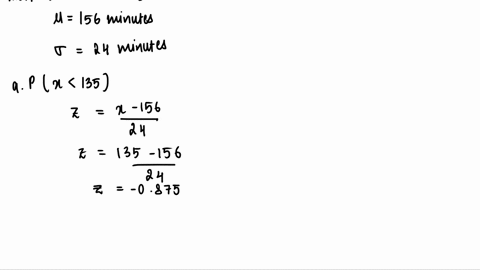 μ = 156 minutes
σ = 24 minutes
a. P ( x < 135 )
z = x - 156 / 24
z = 135 - 156 / 24
z = -0.875